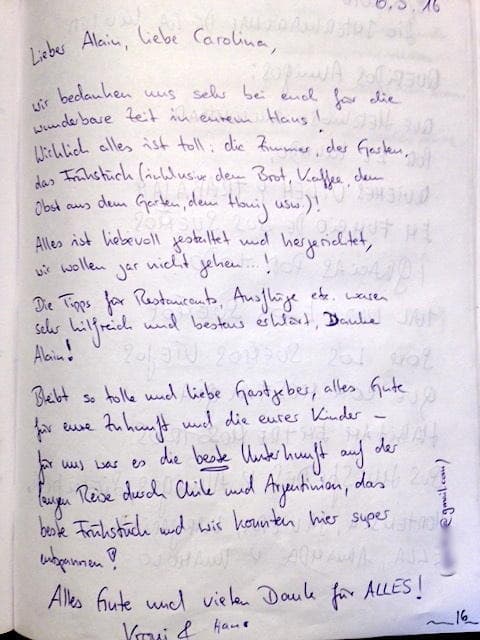 6.3.16
Lieber Alain, liebe Carolina,
wir bedanken uns sehr bei euch für die
wunderbare Zeit in eurem Haus!
Wirklich alles ist toll: die Zimmer, der Garten,
das Frühstück (inklusive dem Brot, Kaffee, dem
Obst aus dem Garten, dem Honig usw.)!
Alles ist liebevoll gestaltet und hergerichtet,
wir wollen gar nicht gehen...!
Die Tipps für Restaurants, Ausflüge etc. waren
sehr hilfreich und bestens erklärt, Danke
Alain!
Bleibt so tolle und liebe Gastgeber, alles Gute
für eure Zukunft und die eurer Kinder –
für uns war es die beste Unterkunft auf der
langen Reise durch Chile und Argentinien, das
beste Frühstück und wir konnten hier super
entspannen!
Alles Gute und vielen Dank für ALLES!
& Hans
@gmail.com)
16